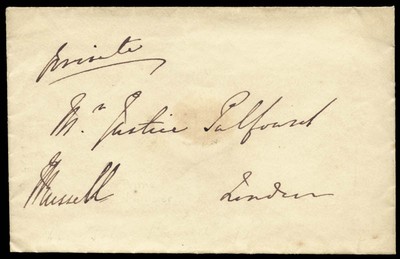 Private
Mr. Justice Talfourd
J Russell London